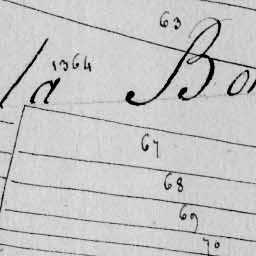 63
1364
la Bo
67
68
69
70